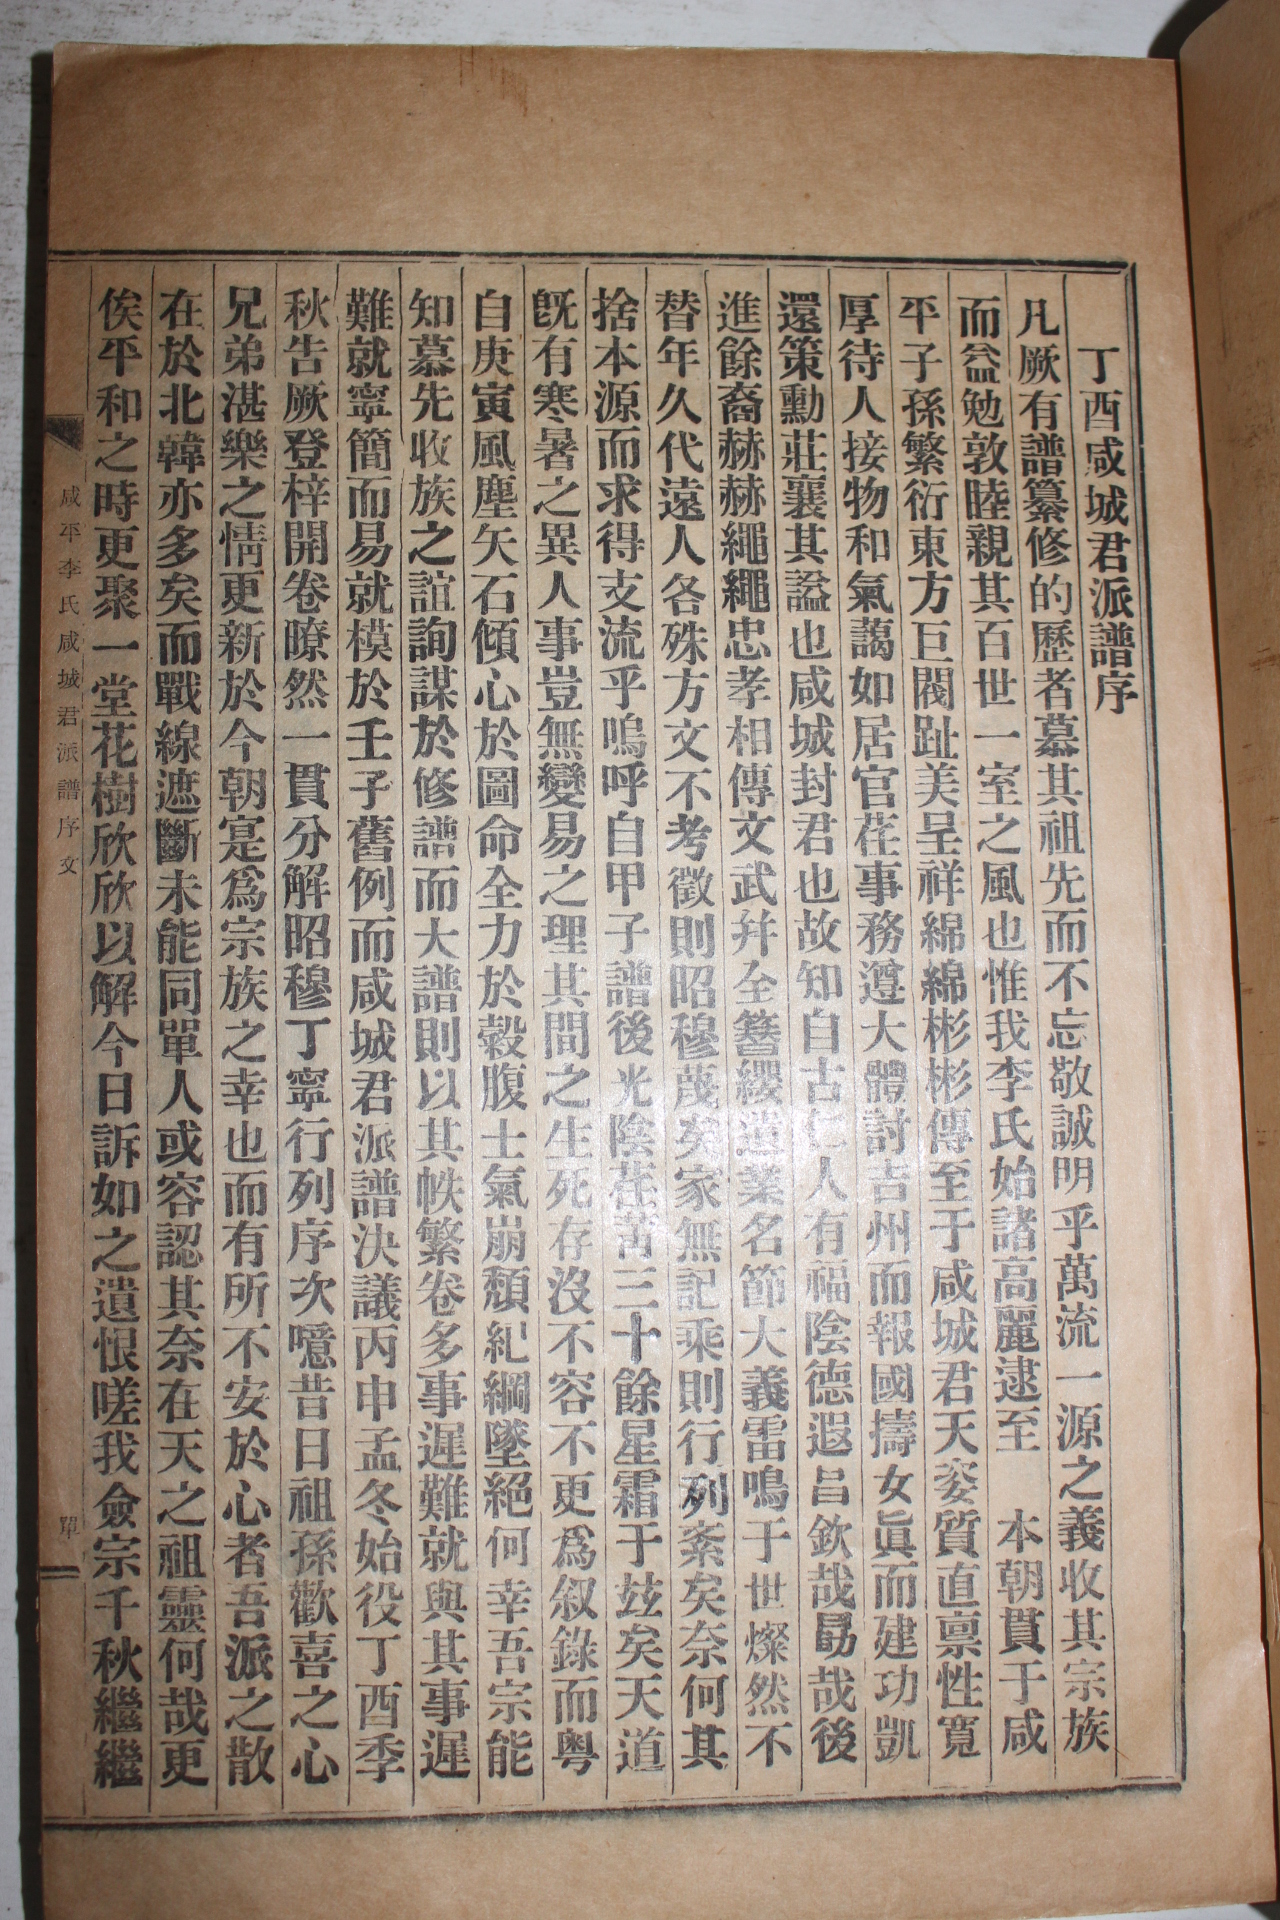 丁酉咸城君派譜序
凡厥有譜纂修的歷者慕其祖先而不忘敬誠明乎萬流一源之義收其宗族
而益勉敦睦親其百世一室之風也惟我李氏始諸高麗逮至 本朝貫于咸
平子孫繁衍東方巨閥趾美呈祥綿綿彬彬傳至于咸城君天姿質直禀性寬
厚待人接物和氣藹如居官莅事務遵大體討吉州而報國擣女眞而建功凱
還策勳莊襄其謚也咸城封君也故知自古仁人有福陰德遐昌欽哉勗哉後
進餘裔赫赫繩繩忠孝相傳文武幷全簪纓遺業名節大義雷鳴于世燦然不
替年久代遠人各殊方文不考徵則昭穆蔑矣家無記乘則行列紊矣奈何其
捨本源而求得支流乎嗚呼自甲子譜後光陰荏苒三十餘星霜于玆矣天道
旣有寒暑之異人事豈無變易之理其間之生死存沒不容不更爲叙錄而粤
自庚寅風塵矢石傾心於圖命全力於穀腹士氣崩頹紀綱墜絕何幸吾宗能
知慕先收族之誼詢謀於修譜而大譜則以其帙繁卷多事遲難就與其事遲
難就寧簡而易就模於壬子舊例而咸城君派譜決議丙申孟冬始役丁酉季
秋告厥登梓開卷暸然一貫分解昭穆丁寧行列序次噫昔日祖孫歡喜之心
兄弟湛樂之情更新於今朝寔爲宗族之幸也而有所不安於心者吾派之散
在於北韓亦多矣而戰線遮斷未能同單人或容認其奈在天之祖靈何哉更
俟平和之時更聚一堂花樹欣欣以解今日訴如之遺恨嗟我僉宗千秋繼繼
咸平李氏咸城君派譜序文 單